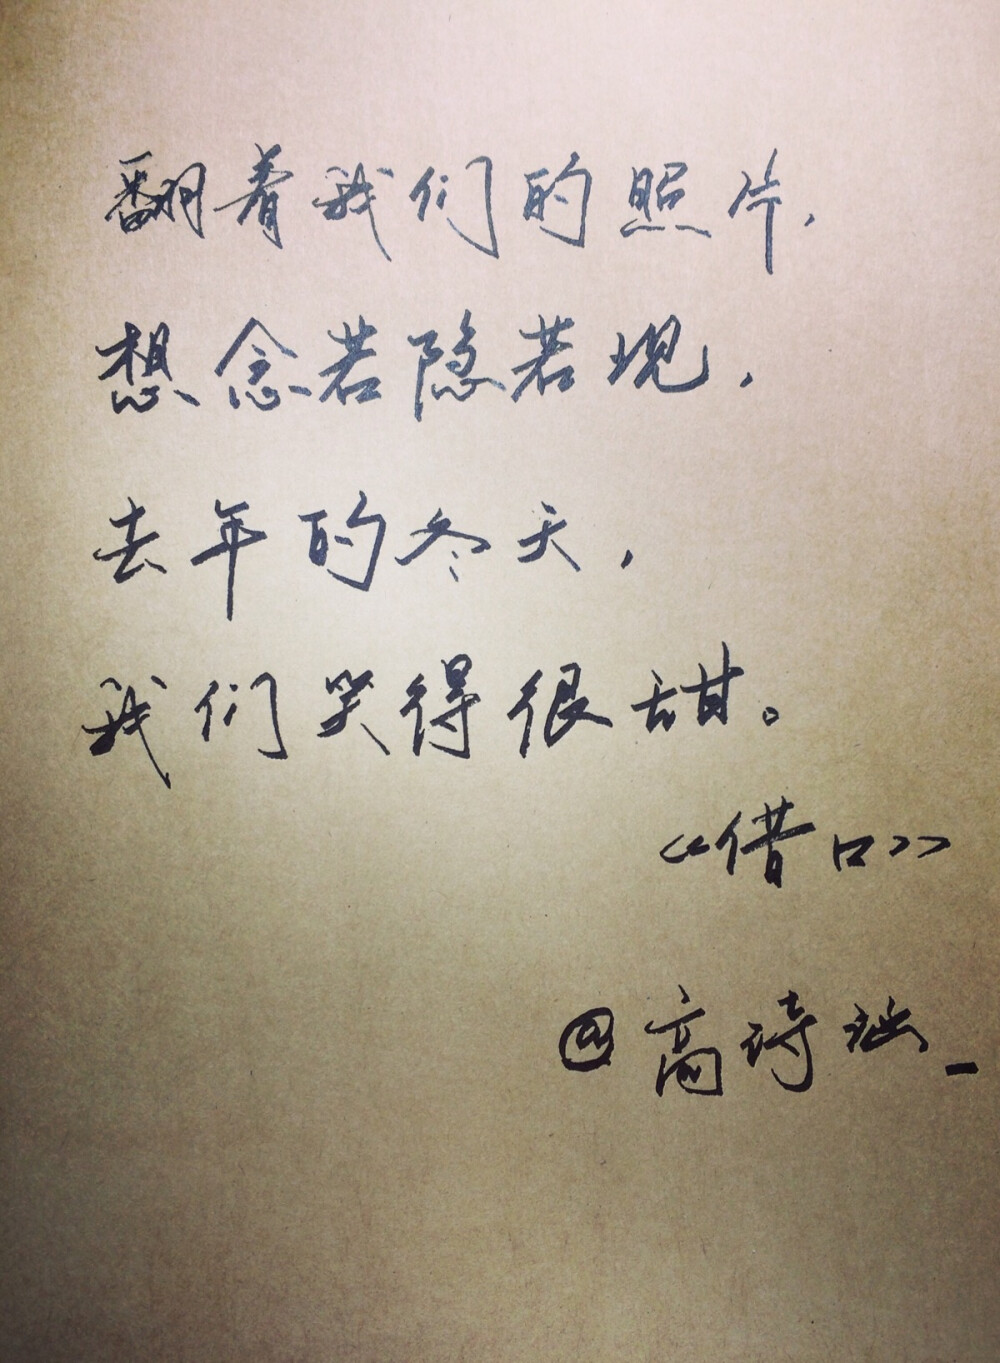 翻着我们的照片，
想念若隐若现，
去年的冬天，
我们笑得很甜。
《借口》
@高琦_